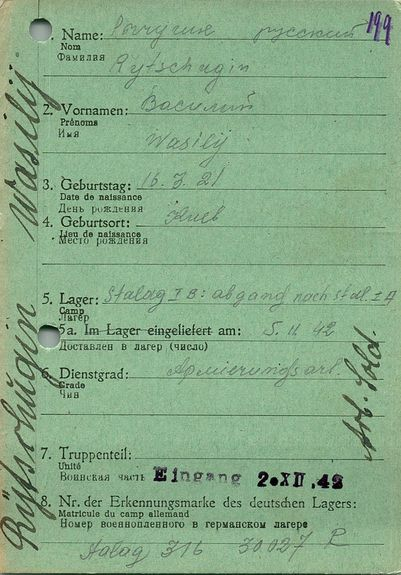 199
1. Name: русский
Nom
Фамилия
Rytschagin
2. Vornamen: Василий
Prénoms
Имя
Wasilij
3. Geburtstag: 16.3.21
Date de naissance
День рождения
4. Geburtsort: Киев
Lieu de naissance
Место рождения
5. Lager: Stalag I B: abgang nach Stal. I A
Camp
Лагерь
5a. Im Lager eingeliefert am: 5.11.42
Доставлен в лагерь (число)
6. Dienstgrad:
Grade
Чин
7. Truppenteil:
Unité
Воинская часть Eingang 2.XII.42
8. Nr. der Erkennungsmarke des deutschen Lagers:
Matricule du camp allemand
Номер военнопленного в германском лагере
316 30027 R
Rytschugin Wasilij
Arb. Sold.